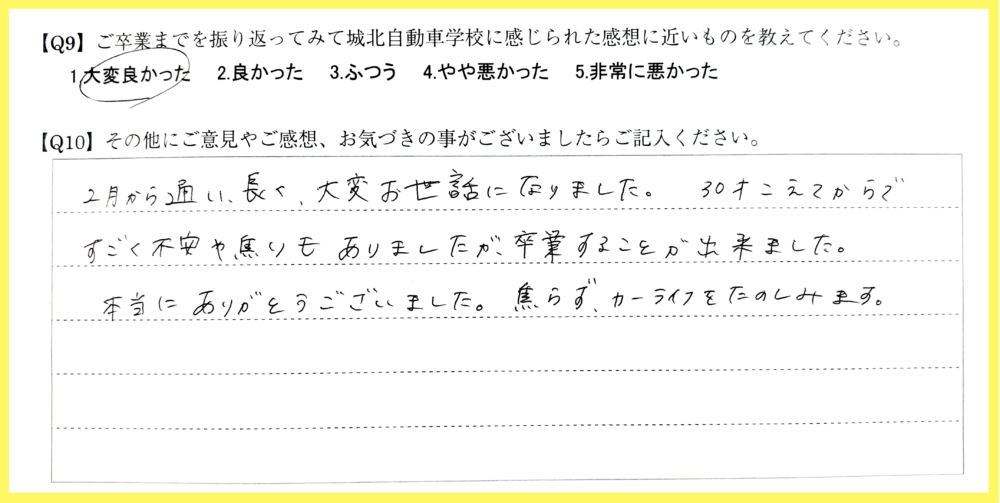 【Q9】ご卒業までを振り返ってみて城北自動車学校に感じられた感想に近いものを教えてください。
1.大変良かった 2.良かった 3.ふつう 4.やや悪かった 5.非常に悪かった
【Q10】その他にご意見やご感想、お気づきの事がございましたらご記入ください。
2月から通い、長く、大変お世話になりました。 30才こえてからで
すごく不安や焦りもありましたが、卒業することが出来ました。
本当にありがとうございました。焦らず、カーライフをたのしみます。